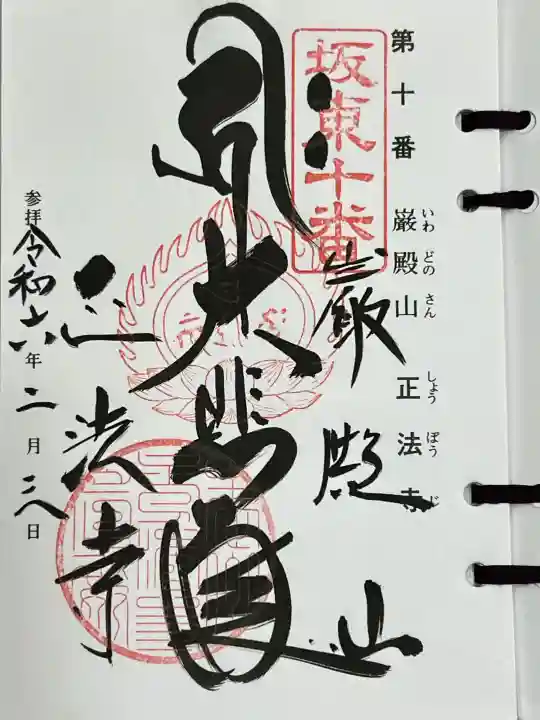 第十番 巌殿山 正法寺
いわ どの さん しょう ぼう じ
坂東十番
巌殿山
大悲殿
正法寺
参拝 令和六年 二月 二八日